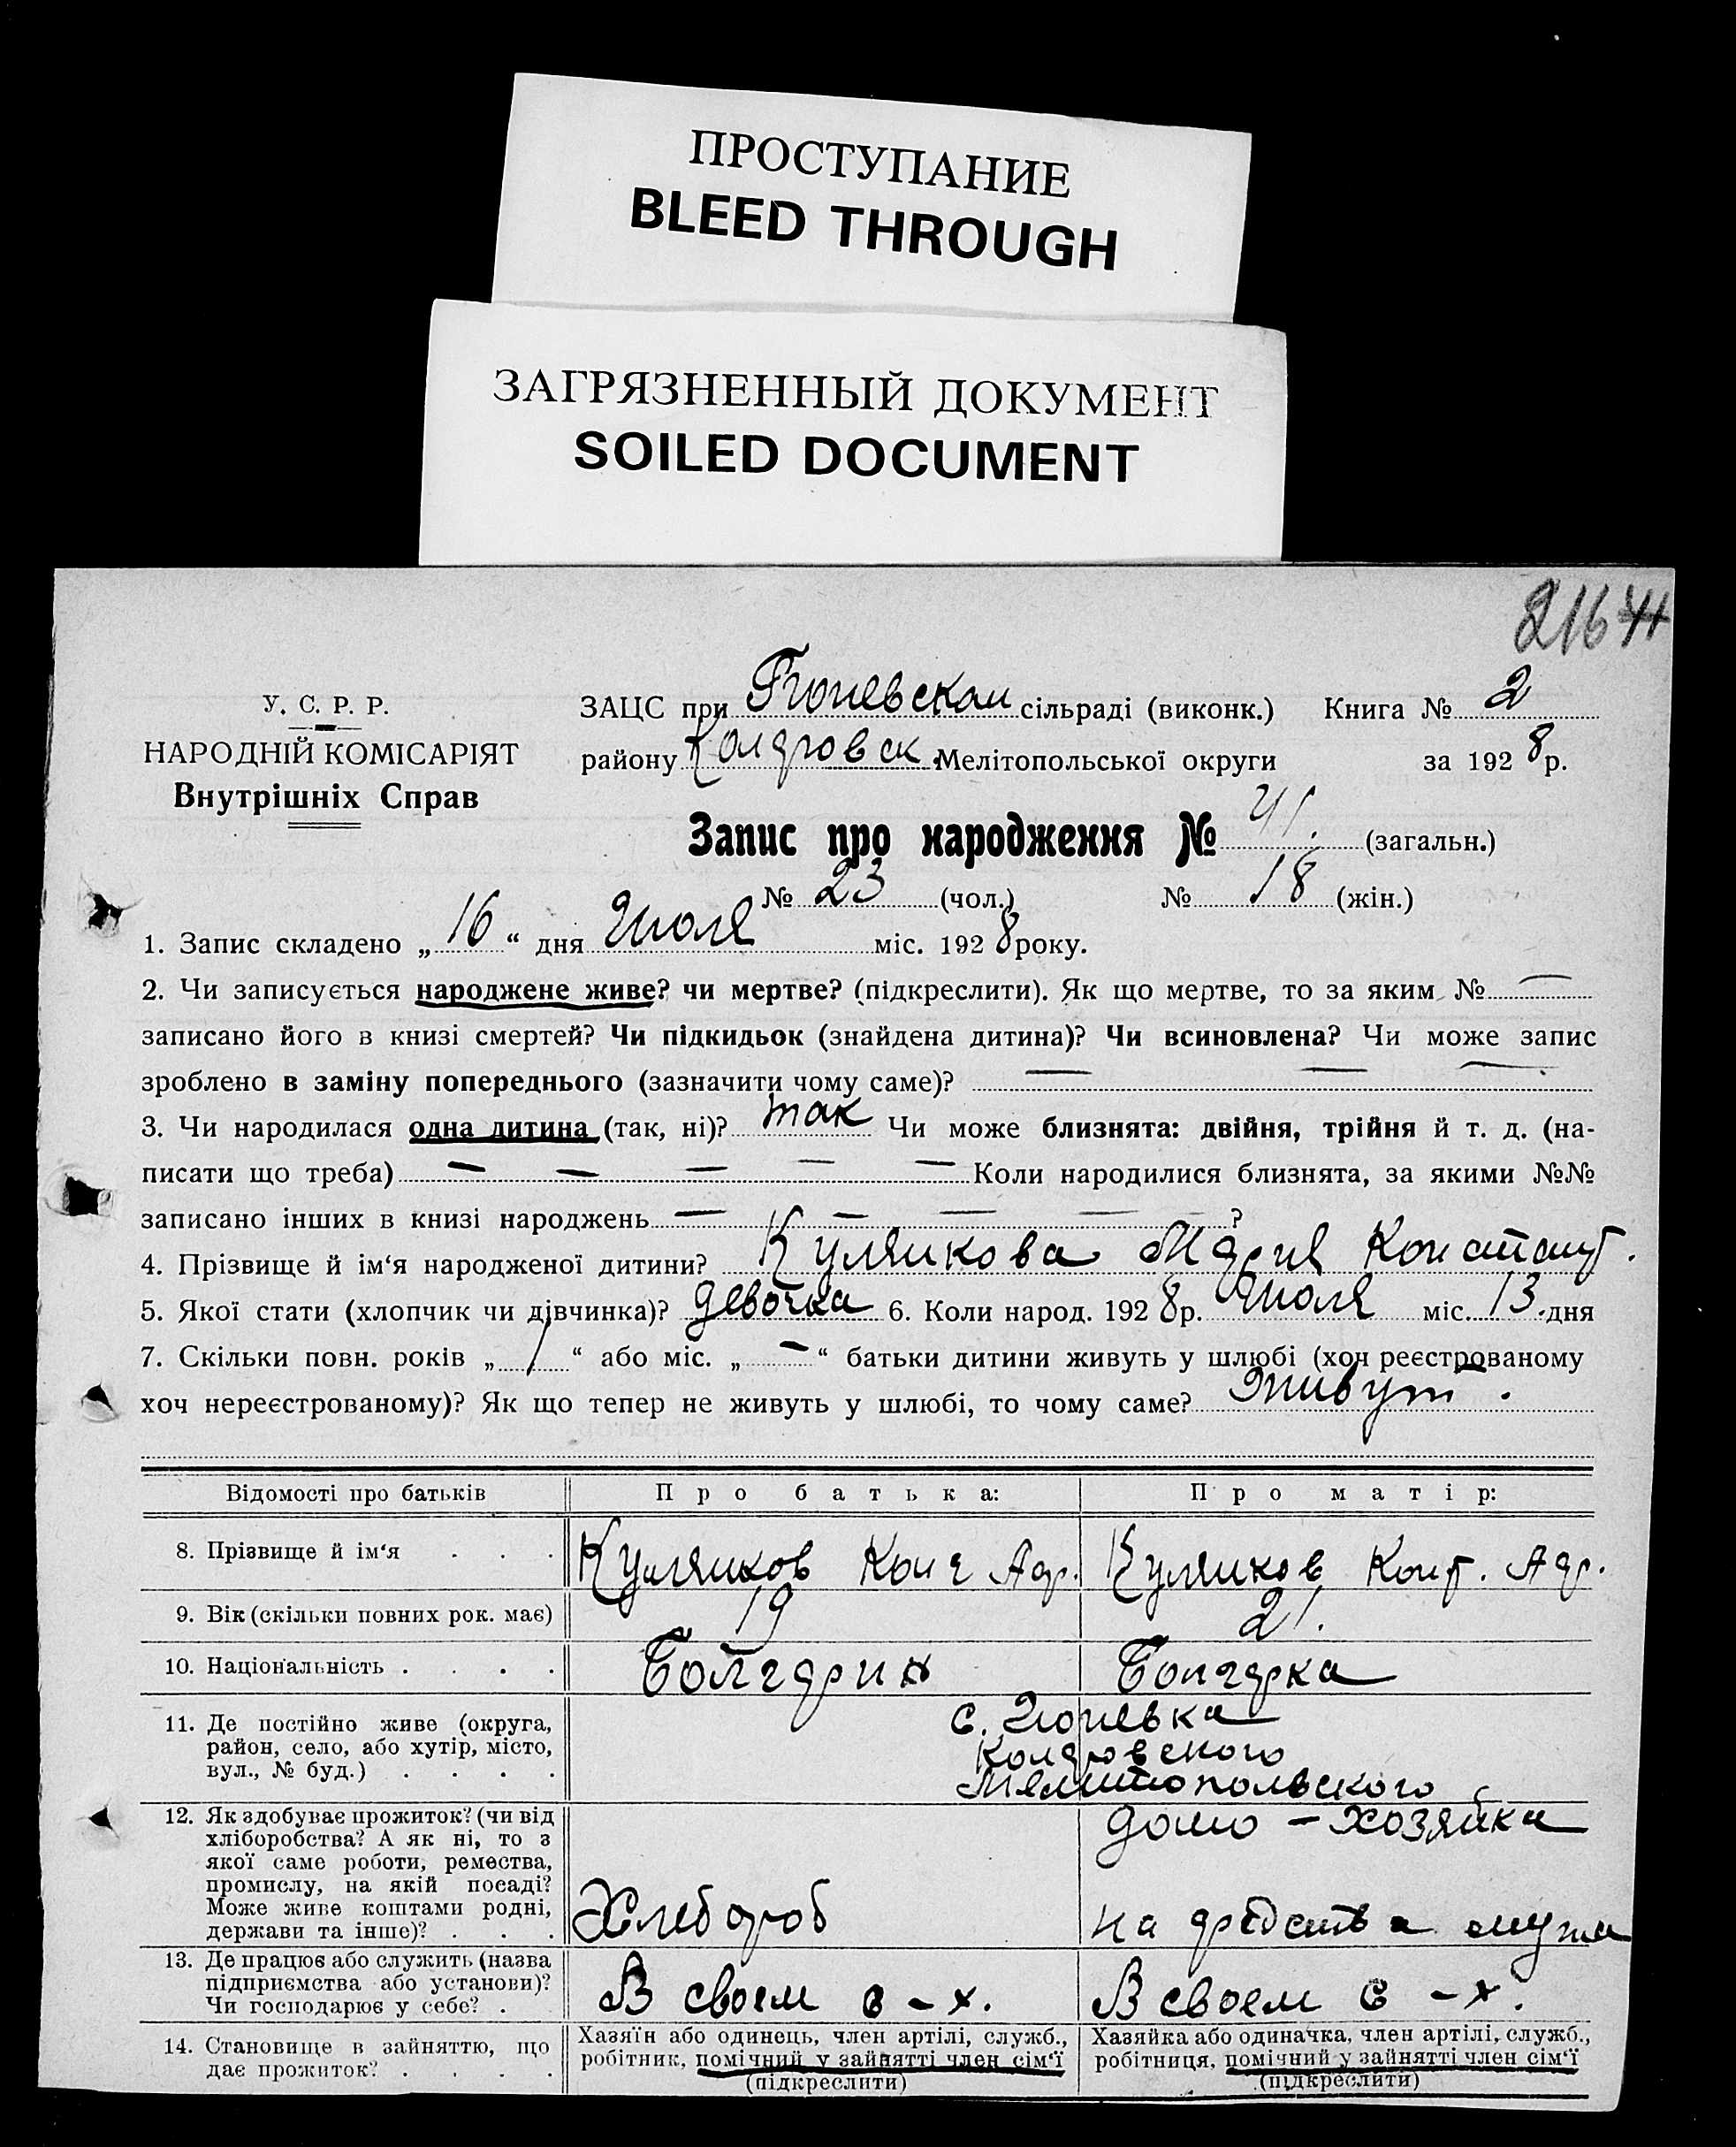 ПРОСТУПАНИЕ
BLEED THROUGH
ЗАГРЯЗНЕННЫЙ ДОКУМЕНТ
SOILED DOCUMENT
216
У. С. Р. Р.
НАРОДНІЙ КОМІСАРІЯТ
Внутрішніх Справ
ЗАЦС при сільраді (виконк.) Книга № 2
району Мелітопольської округи за 1928 р.
Запис про народження № 41. (загальн.)
№ 23 (чол.) № 18 (жін.)
1. Запис складено „16“ дня Июля міс. 1928 року.
2. Чи записується народжене живе? чи мертве? (підкреслити). Як що мертве, то за яким № —
записано його в книзі смертей? Чи підкидьок (знайдена дитина)? Чи всиновлена? Чи може запис
зроблено в заміну попереднього (зазначити чому саме)? — — —
3. Чи народилася одна дитина (так, ні)? так Чи може близнята: двійня, трійня й т. д. (на-
писати що треба) — — — — — Коли народилися близнята, за якими №№
записано інших в книзі народжень — — — — ?
4. Прізвище й ім‘я народженої дитини? Кулликова Мария Констант.
5. Якої стати (хлопчик чи дівчинка)? девочка 6. Коли народ. 1928 р. Июля міс. 13 дня
7. Скільки повн. років „1“ або міс. „—“ батьки дитини живуть у шлюбі (хоч реєстрованому
хоч нереєстрованому)? Як що тепер не живуть у шлюбі, то чому саме? Живут.
Відомості про батьків Про батька: Про матір:
8. Прізвище й ім‘я . . . Конст Адр. Конст. Адр.
9. Вік (скільки повних рок. має) 19 21.
10. Національність . . . . Болгарин Болгарка
11. Де постійно живе (округа,
район, село, або хутір, місто,
вул., № буд.) . . . .
с.
Мелитопольского
12. Як здобуває прожиток? (чи від
хліборобства? А як ні, то з
якої саме роботи, ремества,
промислу, на якій посаді?
Може живе коштами родні,
держави та інше)? . . .
Хлебороб
домо - хозяйка
на средства мужа
13. Де працює або служить (назва
підприємства або установи)?
Чи господарює у себе? .
В своем с - х. В своем с - х.
14. Становище в зайняттю, що
дає прожиток? . . . .
Хазяїн або одинець, член артілі, служб.,
робітник, помічний у зайнятті член сім‘ї
(підкреслити)
Хазяйка або одиначка, член артілі, служб.,
робітниця, помічний у зайнятті член сім‘ї
(підкреслити)